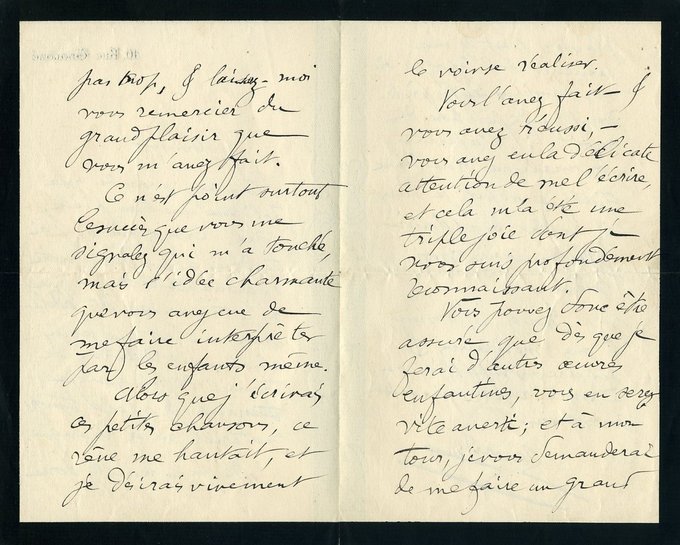 pas trop, & laissez-moi
vous remercier du
grand plaisir que
vous m'avez fait.
Ce n'est point surtout
le succès que vous me
signalez qui m'a touché,
mais l'idée charmante
que vous avez eue de
me faire interpréter
par les enfants même.
Alors que j'écrivais
ces petites chansons, ce
rêve me hantait, et
je désirais vivement
le voir se réaliser.
Vous l'avez fait &
vous avez réussi, –
vous avez eu la délicate
attention de me l'écrire,
et cela m'a été une
triple joie dont je
vous suis profondément
reconnaissant.
Vous pouvez donc être
assuré que dès que je
ferai d'autres œuvres
enfantines, vous en serez
vite averti; et à mon
tour, je vous demanderai
de me faire un grand